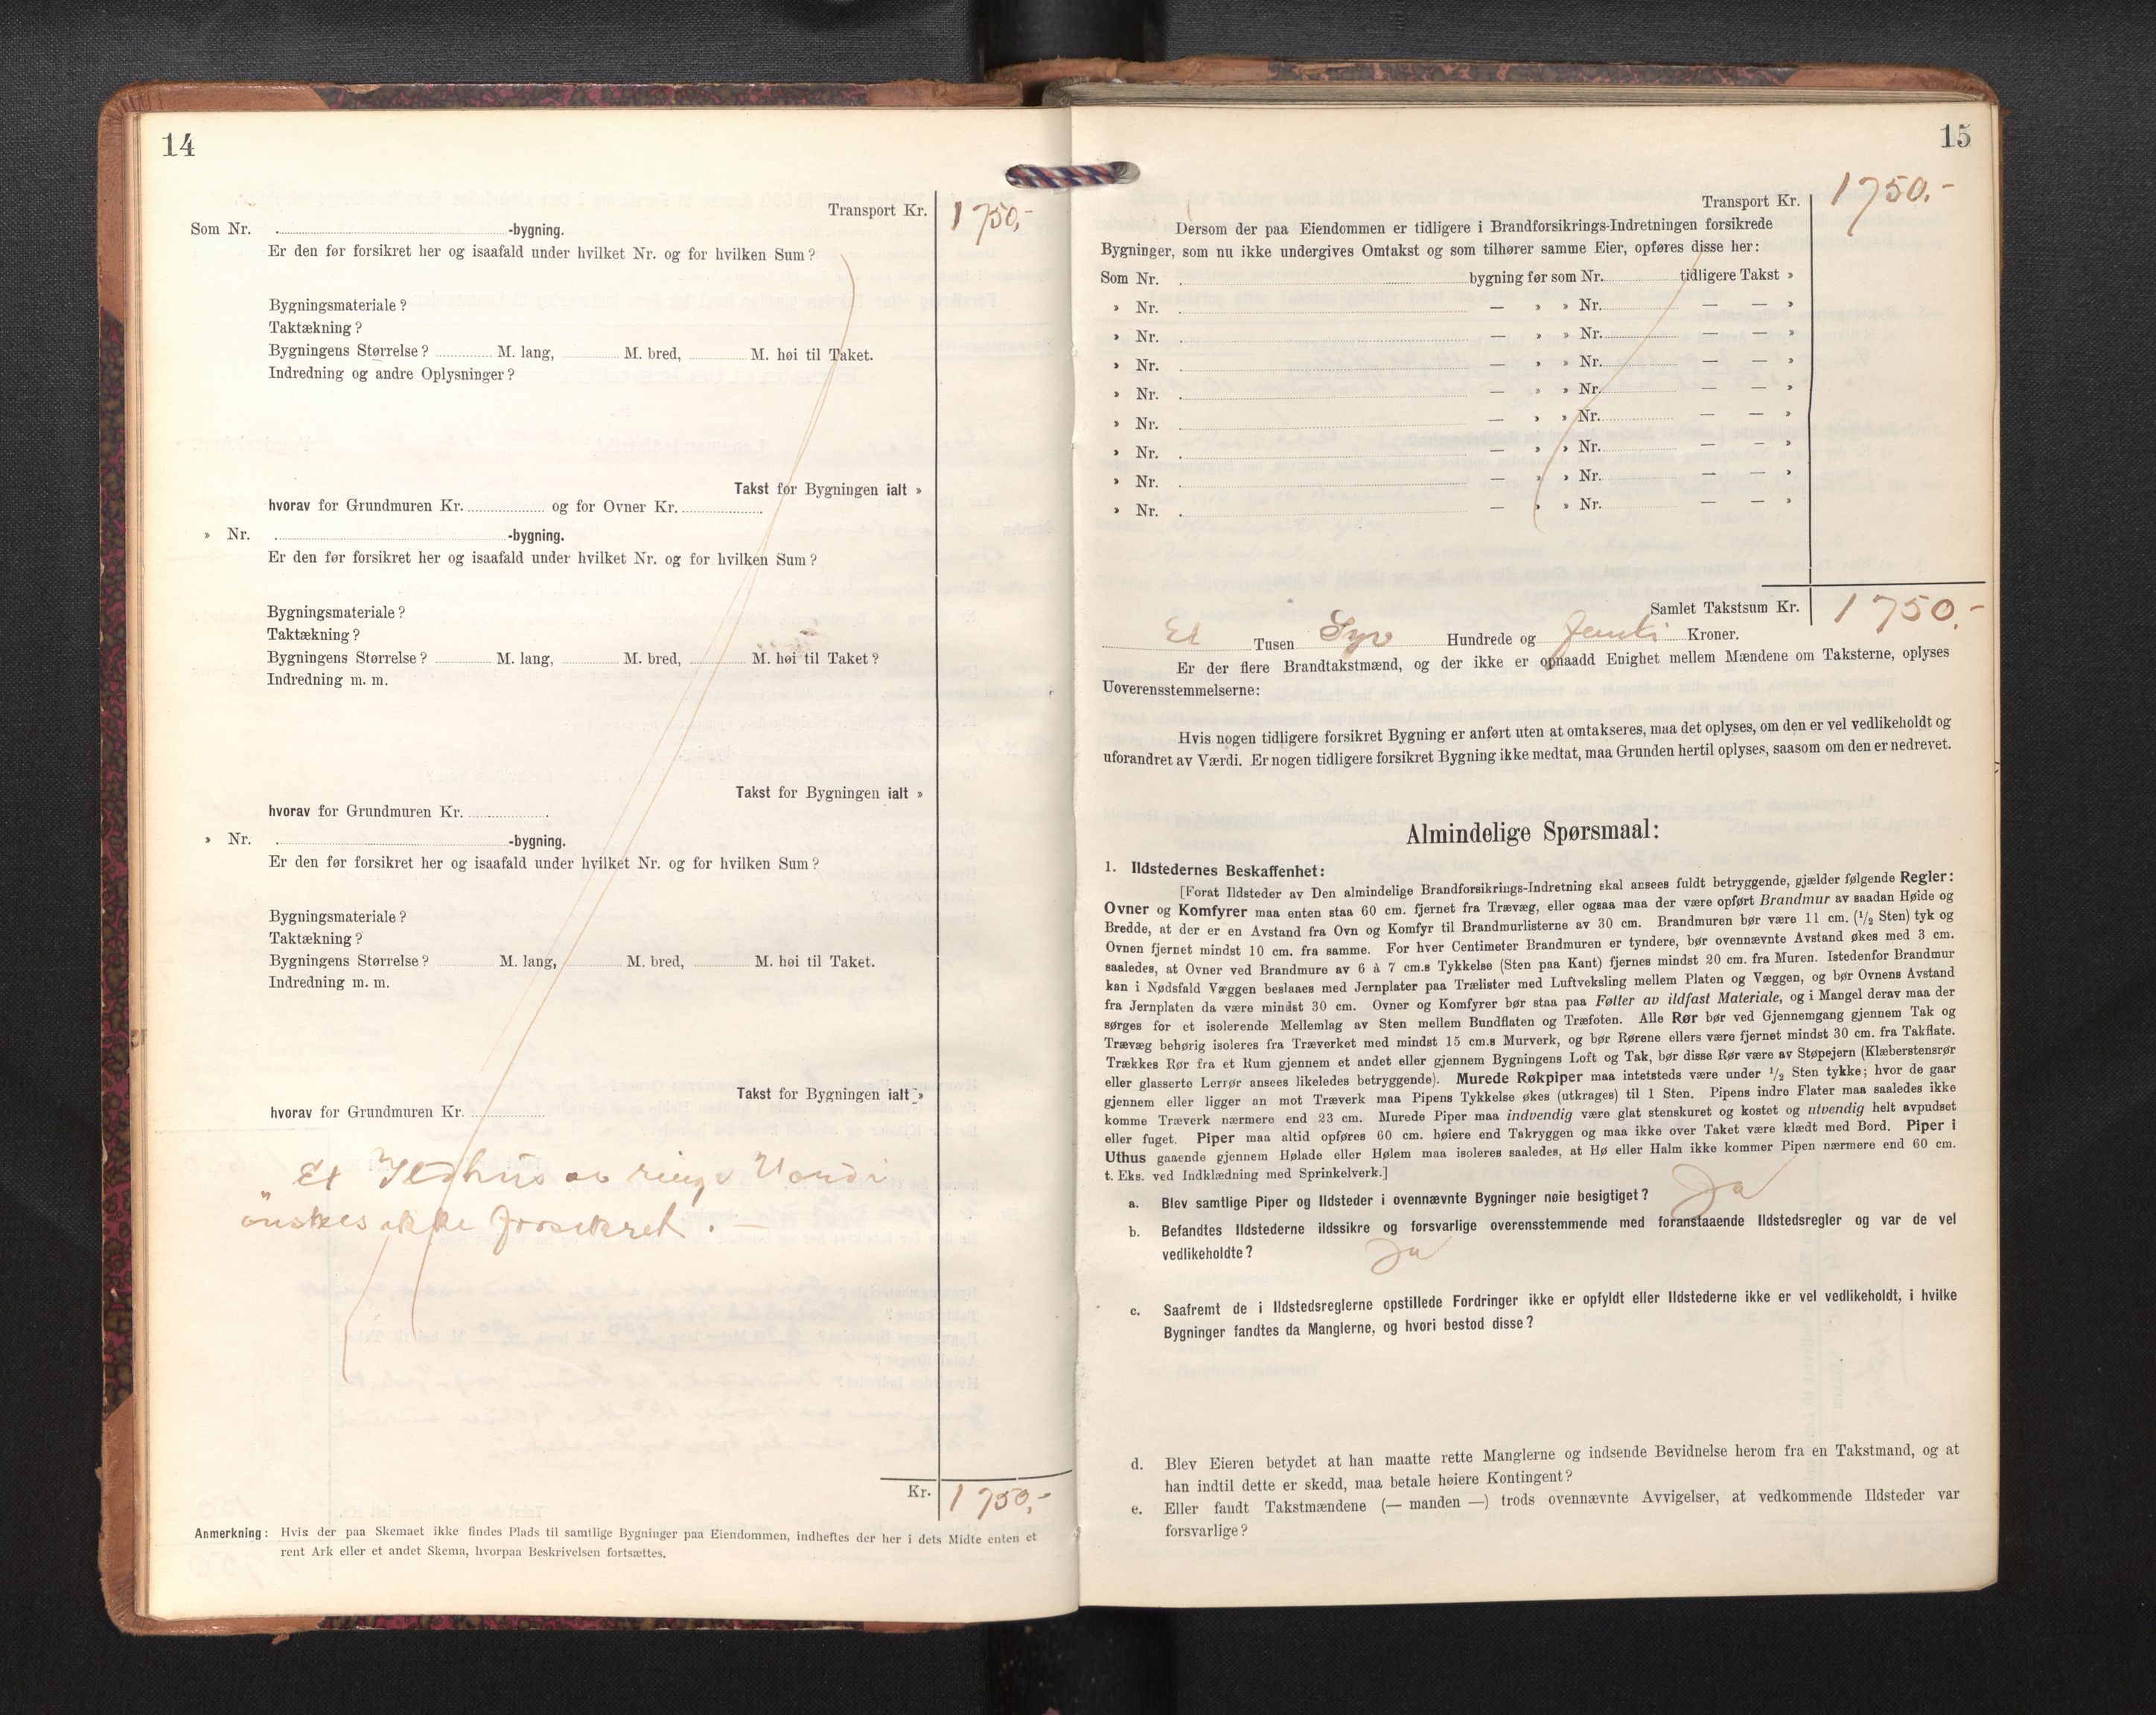 14
Transport Kr. 1750,-
Som Nr. -bygning.
Er den før forsikret her og isaafald under hvilket Nr. og for hvilken Sum?
Bygningsmateriale?
Taktækning?
Bygningens Størrelse? M. lang, M. bred, M. høi til Taket.
Indredning og andre Oplysninger?
Takst for Bygningen ialt »
hvorav for Grundmuren Kr. og for Ovner Kr.
» Nr. -bygning.
Er den før forsikret her og isaafald under hvilket Nr. og for hvilken Sum?
Bygningsmateriale?
Taktækning?
Bygningens Størrelse? M. lang, M. bred, M. høi til Taket?
Indredning m. m.
Takst for Bygningen ialt »
hvorav for Grundmuren Kr.
» Nr. -bygning.
Er den før forsikret her og isaafald under hvilket Nr. og for hvilken Sum?
Bygningsmateriale?
Taktækning?
Bygningens Størrelse? M. lang, M. bred, M. høi til Taket.
Indredning m. m.
Takst for Bygningen ialt »
hvorav for Grundmuren Kr.
Et Ildhus av ringe Værdi
ønskes ikke forsikret. —
Kr. 1750,-
Anmerkning: Hvis der paa Skemaet ikke findes Plads til samtlige Bygninger paa Eiendommen, indheftes der her i dets Midte enten et
rent Ark eller et andet Skema, hvorpaa Beskrivelsen fortsættes.
15
Transport Kr. 1750.-
Dersom der paa Eiendommen er tidligere i Brandforsikrings-Indretningen forsikrede
Bygninger, som nu ikke undergives Omtakst og som tilhører samme Eier, opføres disse her:
Som Nr. bygning før som Nr. tidligere Takst »
» Nr. — » » Nr. — — »
» Nr. — » » Nr. — — »
» Nr. — » » Nr. — — »
» Nr. — » » Nr. — — »
» Nr. — » » Nr. — — »
» Nr. — » » Nr. — — »
» Nr. — » » Nr. — — »
» Nr. — » » Nr. — — »
Samlet Takstsum Kr. 1750.-
Et Tusen Syv Hundrede og femti Kroner.
Er der flere Brandtakstmænd, og der ikke er opnaadd Enighet mellem Mændene om Taksterne, oplyses
Uoverensstemmelserne:
Hvis nogen tidligere forsikret Bygning er anført uten at omtakseres, maa det oplyses, om den er vel vedlikeholdt og
uforandret av Værdi. Er nogen tidligere forsikret Bygning ikke medtat, maa Grunden hertil oplyses, saasom om den er nedrevet.
Almindelige Spørsmaal:
1. Ildstedernes Beskaffenhet:
[Forat Ildsteder av Den almindelige Brandforsikrings-Indretning skal ansees fuldt betryggende, gjælder følgende Regler:
Ovner og Komfyrer maa enten staa 60 cm. fjernet fra Trævæg, eller ogsaa maa der være opført Brandmur av saadan Høide og
Bredde, at der er en Avstand fra Ovn og Komfyr til Brandmurlisterne av 30 cm. Brandmuren bør være 11 cm. (1/2 Sten) tyk og
Ovnen fjernet mindst 10 cm. fra samme. For hver Centimeter Brandmuren er tyndere, bør ovennævnte Avstand økes med 3 cm.
saaledes, at Ovner ved Brandmure av 6 à 7 cm.s Tykkelse (Sten paa Kant) fjernes mindst 20 cm. fra Muren. Istedenfor Brandmur
kan i Nødsfald Væggen beslaaes med Jernplater paa Trælister med Luftveksling mellem Platen og Væggen, og bør Ovnens Avstand
fra Jernplaten da være mindst 30 cm. Ovner og Komfyrer bør staa paa Føtter av ildfast Materiale, og i Mangel derav maa der
sørges for et isolerende Mellemlag av Sten mellem Bundflaten og Træfoten. Alle Rør bør ved Gjennemgang gjennem Tak og
Trævæg behørig isoleres fra Træverket med mindst 15 cm.s Murverk, og bør Rørene ellers være fjernet mindst 30 cm. fra Takflate.
Trækkes Rør fra et Rum gjennem et andet eller gjennem Bygningens Loft og Tak, bør disse Rør være av Støpejern (Klæberstensrør
eller glasserte Lerrør ansees likeledes betryggende). Murede Røkpiper maa intetsteds være under 1/2 Sten tykke; hvor de gaar
gjennem eller ligger an mot Træverk maa Pipens Tykkelse økes (utkrages) til 1 Sten. Pipens indre Flater maa saaledes ikke
komme Træverk nærmere end 23 cm. Murede Piper maa indvendig være glat stenskuret og kostet og utvendig helt avpudset
eller fuget. Piper maa altid opføres 60 cm. høiere end Takryggen og maa ikke over Taket være klædt med Bord. Piper i
Uthus gaaende gjennem Hølade eller Hølem maa isoleres saaledes, at Hø eller Halm ikke kommer Pipen nærmere end 60 cm.
t. Eks. ved Indklædning med Sprinkelverk.]
a. Blev samtlige Piper og Ildsteder i ovennævnte Bygninger nøie besigtiget? Ja
b. Befandtes Ildstederne ildssikre og forsvarlige overensstemmende med foranstaaende Ildstedsregler og var de vel
vedlikeholdte? Ja
c. Saafremt de i Ildstedsreglerne opstillede Fordringer ikke er opfyldt eller Ildstederne ikke er vel vedlikeholdt, i hvilke
Bygninger fandtes da Manglerne, og hvori bestod disse?
d. Blev Eieren betydet at han maatte rette Manglerne og indsende Bevidnelse herom fra en Takstmand, og at
han indtil dette er skedd, maa betale høiere Kontingent?
e. Eller fandt Takstmændene (— manden —) trods ovennævnte Avvigelser, at vedkommende Ildsteder var
forsvarlige?